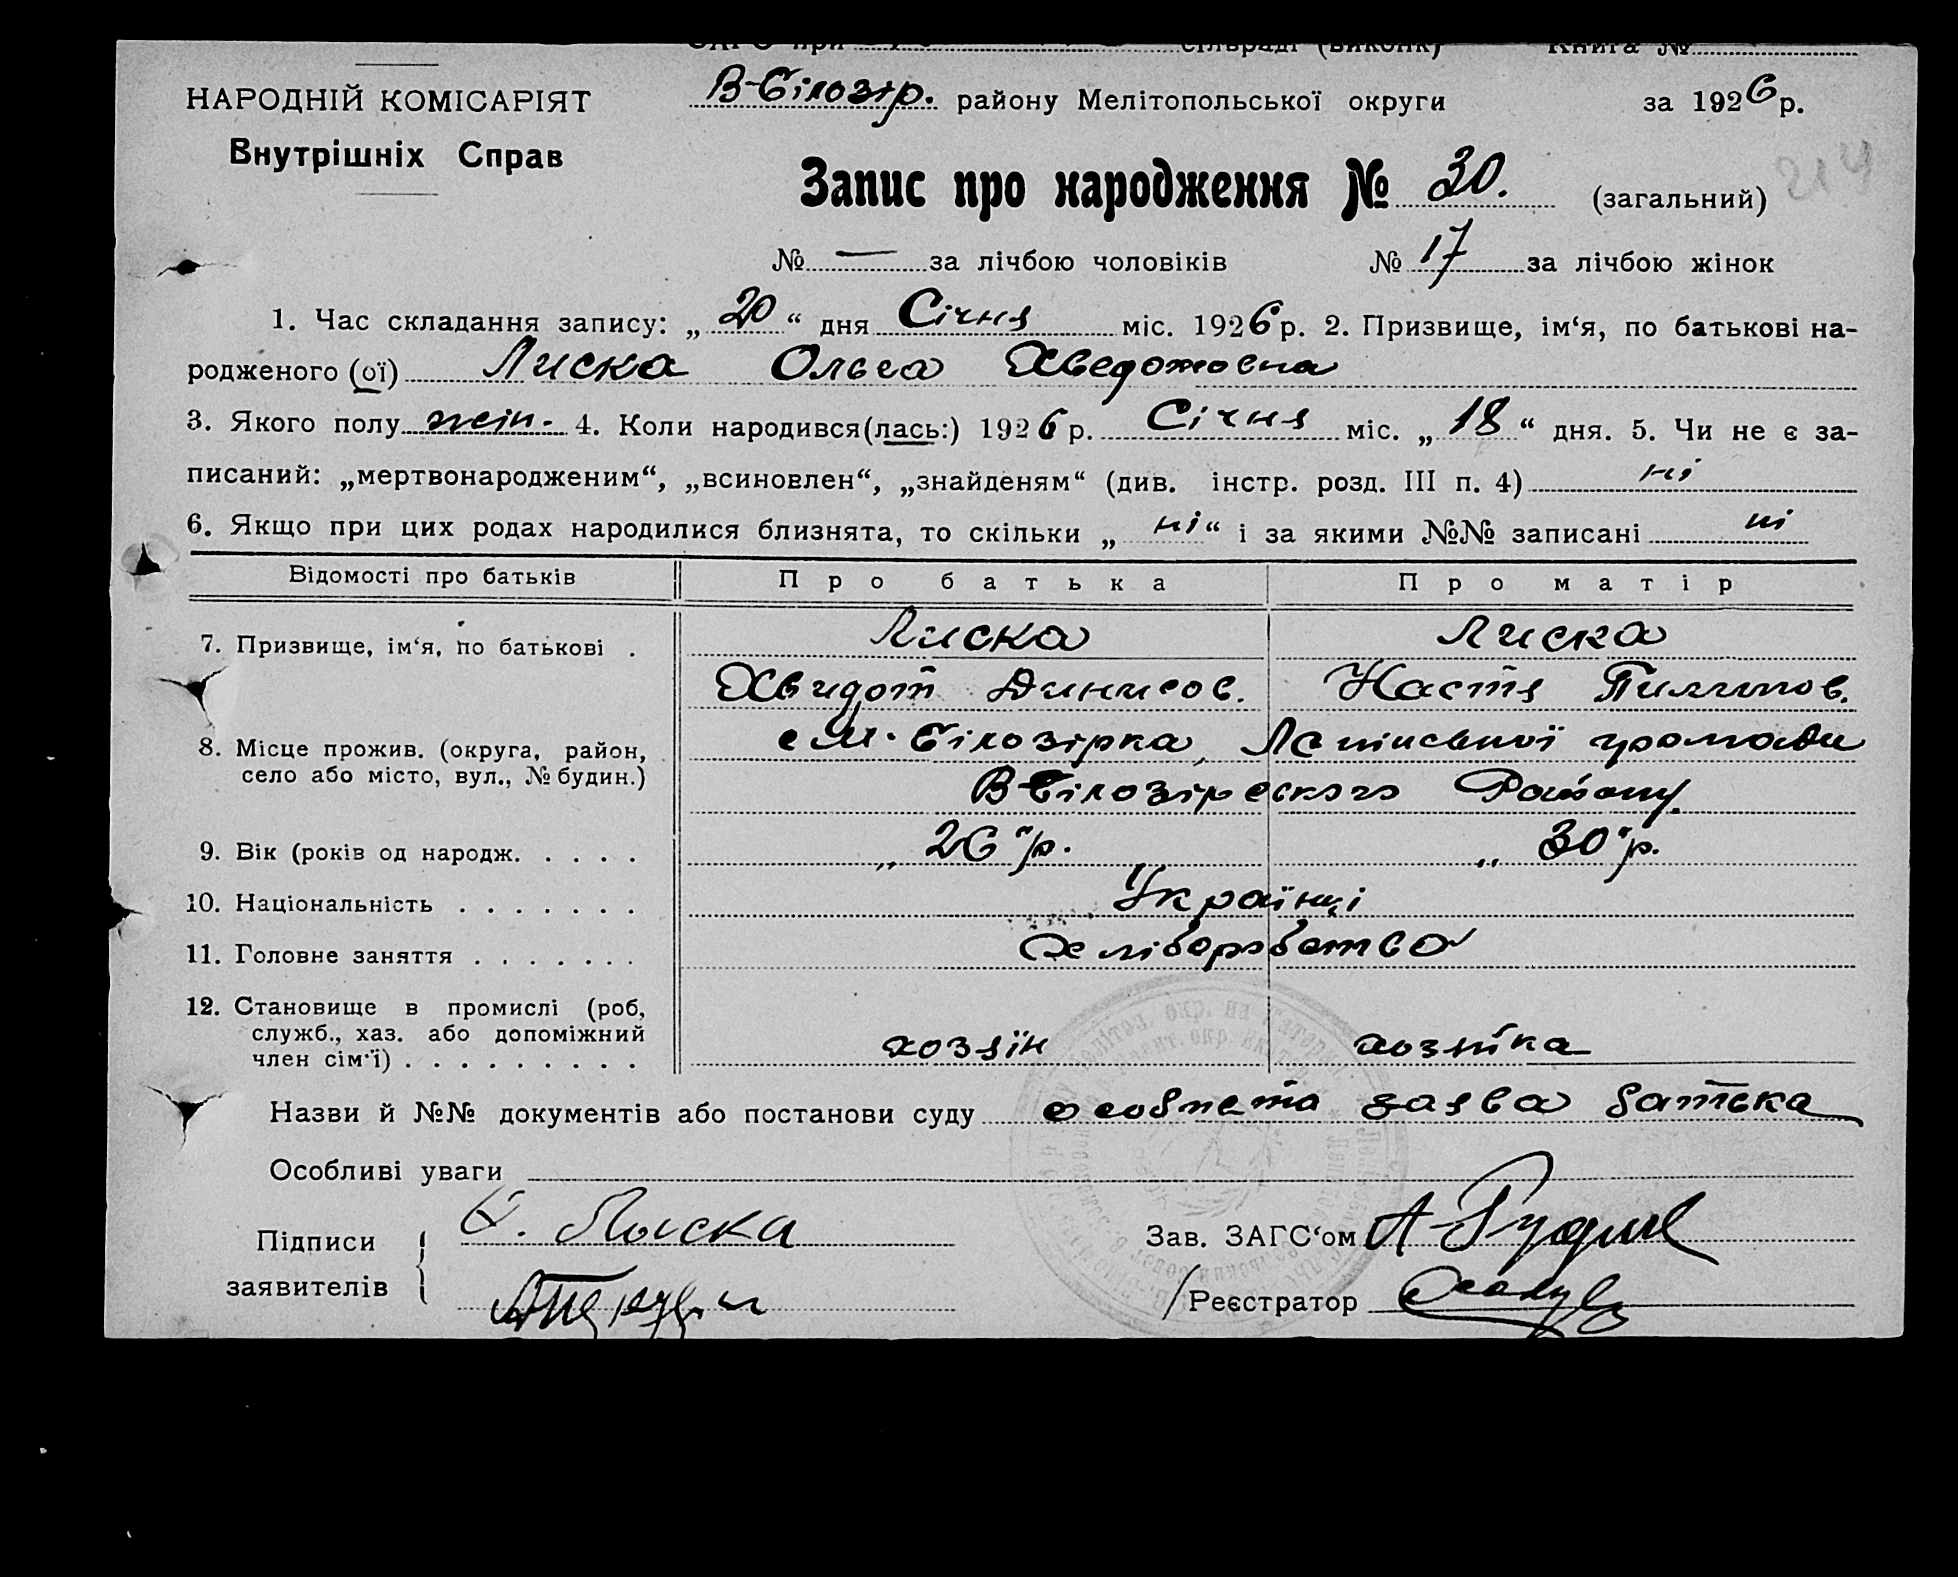 НАРОДНІЙ КОМІСАРІЯТ
Внутрішніх Справ
ЗАГС при сільраді (виконк) Книга №
В-Білозір. району Мелітопольської округи за 1926 р.
Запис про народження № 30. (загальний) 214
№ — за лічбою чоловіків № 17 за лічбою жінок
1. Час складання запису: „ 20 “ дня Січня міс. 1926 р. 2. Призвище, ім‘я, по батькові на-
родженого (ої) Лиска Ольга Хведотовна
3. Якого полу жін. 4. Коли народився(лась:) 1926 р. Січня міс. „ 18 “ дня. 5. Чи не є за-
писаний: „мертвонародженим“, „всиновлен“, „знайденям“ (див. інстр. розд. III п. 4) ні
6. Якщо при цих родах народилися близнята, то скільки „ ні “ і за якими №№ записані ні
Відомості про батьків Про батька Про матір
7. Призвище, ім‘я, по батькові . Лиска Лиска
Хвидот Динисов. Настя Пилипов.
8. Місце прожив. (округа, район, село або місто, вул., № будин.) с М-Білозірка, громади
ВБілозірского Району.
9. Вік (років од народж. . . . . „ 26 “ р. „ 30 “ р.
10. Національність . . . . . . . Українці
11. Головне заняття . . . . . . . Хліборобство
12. Становище в промислі (роб,
служб., хаз. або допоміжний
член сім‘ї) . . . . . . . . . хозяїн хозяйка
Назви й №№ документів або постанови суду заява батька
Особливі уваги
Підписи заявителів Х. Лыска
Зав. ЗАГС‘ом
Реєстратор